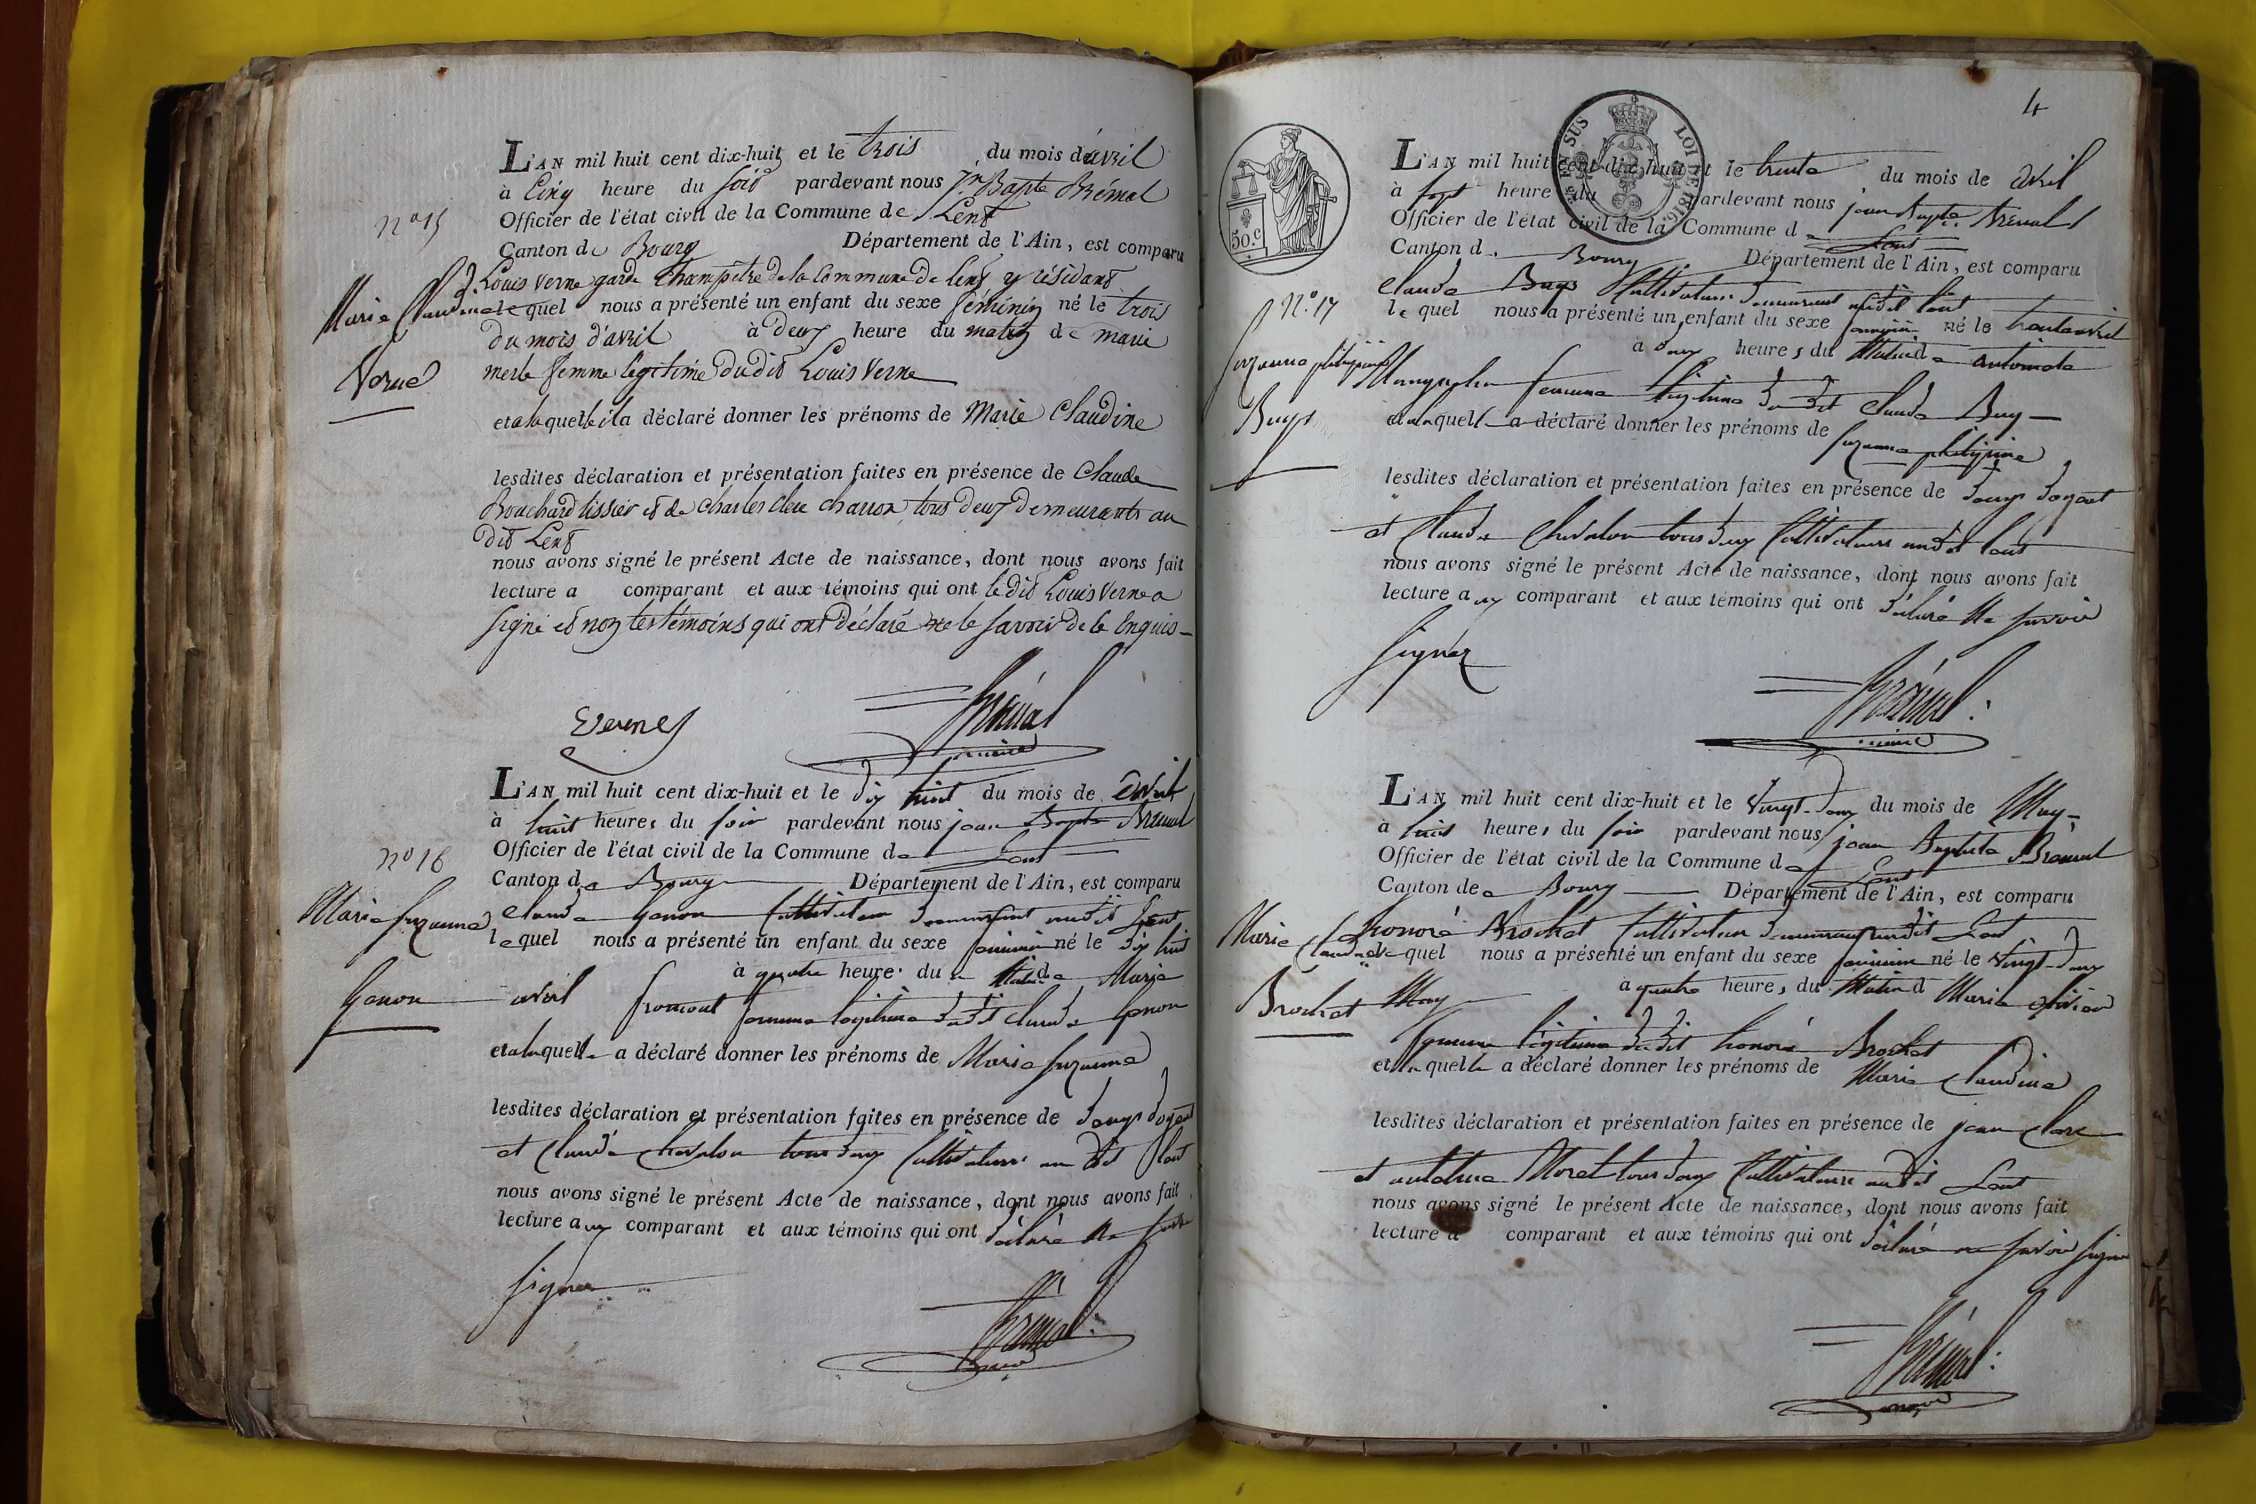 L'AN mil huit cent dix-huit et le trois du mois d'avril
à Cinq heure du soir pardevant nous Jn Bapte Brémal
Officier de l'état civil de la Commune de Lent
Canton de Bourg Département de l'Ain, est comparu
Louis Verne garde Champêtre de la Commune de lent y résidant
lequel nous a présenté un enfant du sexe féminin né le trois
du mois d'avril à deux heure du matin de marie
merle femme legitime du dit Louis Verne
et a laquelle il a déclaré donner les prénoms de Marie Claudine
lesdites déclaration et présentation faites en présence de Claude
Bouchard tissier et de Charles clere charron tous deux demeurants au
dit Lent
nous avons signé le présent Acte de naissance, dont nous avons fait
lecture a comparant et aux témoins qui ont le dit Louis Verne a
signé et non les témoins qui ont déclaré ne le savoir de ce enquis
no 15
Marie Claudine
Verne
Verne
Brémal
maire
L'AN mil huit cent dix-huit et le dix huit du mois de avril
à huit heures du soir pardevant nous jean Bapte Brémal
Officier de l'état civil de la Commune de Lent
Canton de Bourg Département de l'Ain, est comparu
Claude Genon Cultivateur demeurant audit Lent
lequel nous a présenté un enfant du sexe féminin né le dix huit
à quatre heure du Matin de Marie
avril fromont femme légitime dudit Claude Genon
et a laquelle a déclaré donner les prénoms de Marie suzanne
lesdites déclaration et présentation faites en présence de
et Claude Chevalon tous deux Cultivateurs au dit Lent
nous avons signé le présent Acte de naissance, dont nous avons fait
lecture aux comparant et aux témoins qui ont déclaré ne savoir
signer
no 16
Marie suzanne
Genon
Brémal
maire
4
SUS LOI DE 1816.
50.c
L'AN mil huit cent dix-huit et le trente du mois de avril
à sept heure du pardevant nous jean Bapte Brémal
Officier de l'état civil de la Commune de Lent
Canton d. Bourg Département de l'Ain, est comparu
Claude Buys Cultivateur demeurant audit Lent
lequel nous a présenté un enfant du sexe féminin né le trente avril
à onze heures du Matin de antoinete
femme légitime du dit Claude Buy
et a laquelle a déclaré donner les prénoms de suzanne
lesdites déclaration et présentation faites en présence de
et Claude Chevalon tous deux Cultivateurs audit Lent
nous avons signé le présent Acte de naissance, dont nous avons fait
lecture aux comparant et aux témoins qui ont déclaré Ne savoir
signer
N.o 17
suzanne
Buys
Brémal
maire
L'AN mil huit cent dix-huit et le vingt-deux du mois de May
à huit heures du soir pardevant nous jean Baptiste Brémal
Officier de l'état civil de la Commune de Lent
Canton de Bourg Département de l'Ain, est comparu
honoré Brochet Cultivateur demeurant audit Lent
lequel nous a présenté un enfant du sexe féminin né le vingt-deux
May à quatre heures du Matin d Marie
femme légitime dudit honoré Brochet
et a laquelle a déclaré donner les prénoms de Marie Claudine
lesdites déclaration et présentation faites en présence de jean Clere
et antoine Morel tous deux Cultivateurs audit Lent
nous avons signé le présent Acte de naissance, dont nous avons fait
lecture a comparant et aux témoins qui ont déclaré ne savoir signer
Marie Claudine
Brochet
Brémal
maire